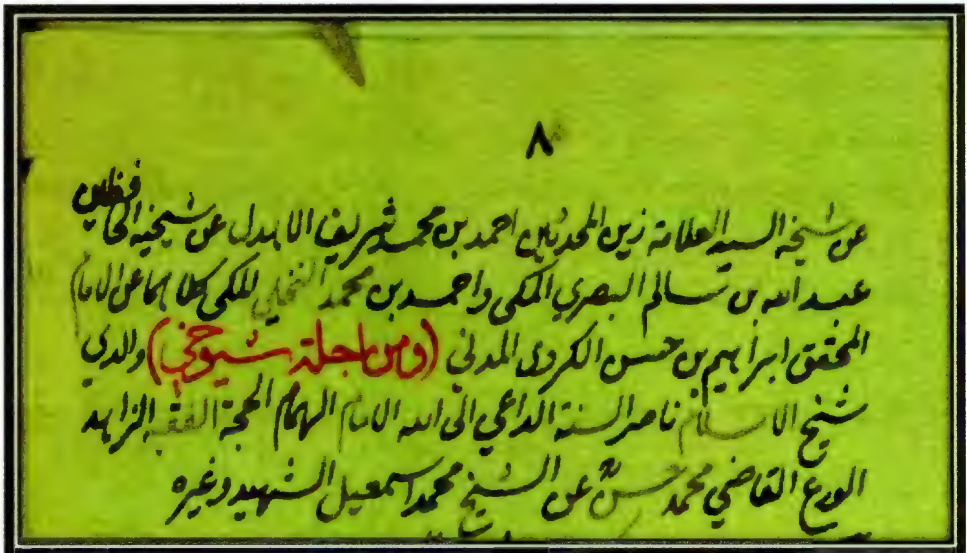 ٨
عن شيخه السيد العلامة زين المحدثين احمد بن محمد شريف الاهدل عن شيخيه الحافظين
عبد الله بن سالم البصري المكي واحمد بن محمد النخلي المكي كلاهما عن الامام
المحقق ابراهيم بن حسن الكردي المدني (ومن اجلة شيوخي) والدي
شيخ الاسلام ناصر السنة الداعي الى الله الامام الهمام الحجة الفقيه الزاهد
الورع القاضي محمد حسن عن الشيخ محمد اسمعيل الشهيد وغيره